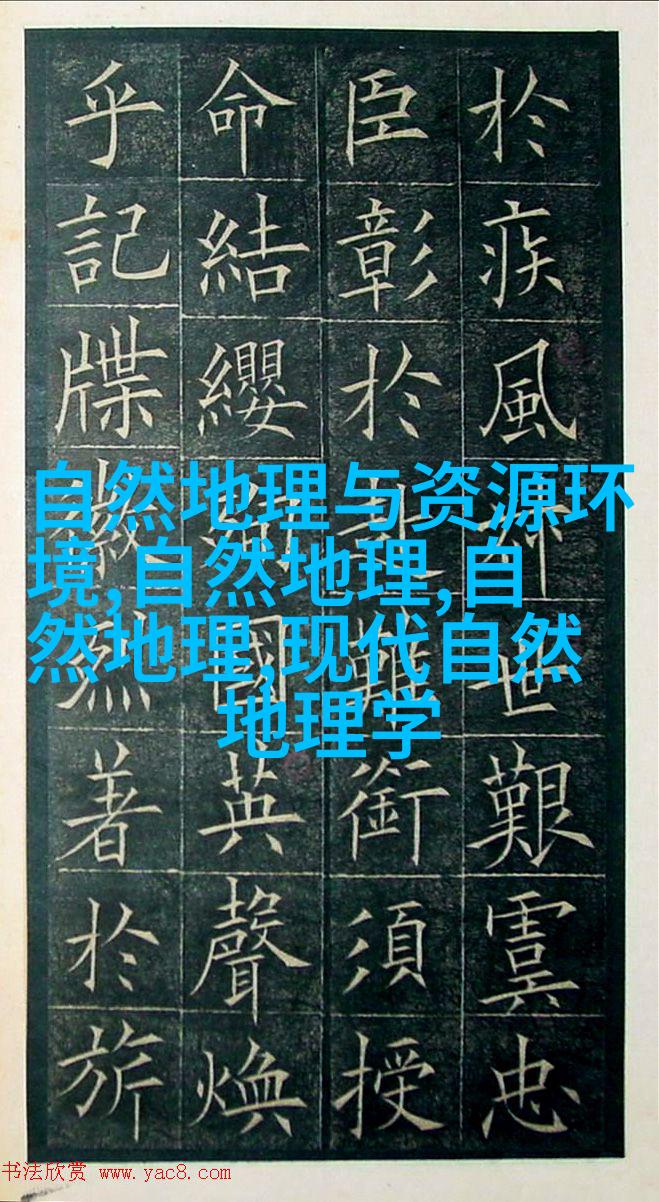 於疾風世艱虞忠
臣彰於難銜須授
命結纓國英聲煥
乎記牒烈著於旂
自然地理与资源环
境,自然地理,自
然地理,现代自然
地理学
书法欣赏 www.yac8.com